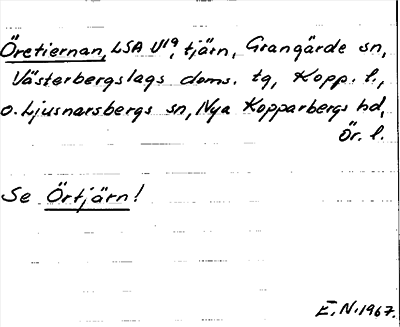 Öretiernan, LSA U19, tjärn, Grangärde sn,
Västerbergslags doms. tg, Kopp. l.,
o. Ljusnarsbergs sn, Nya Kopparbergs hd,
Ör. l.
Se Örtjärn!
E.N. 1967.